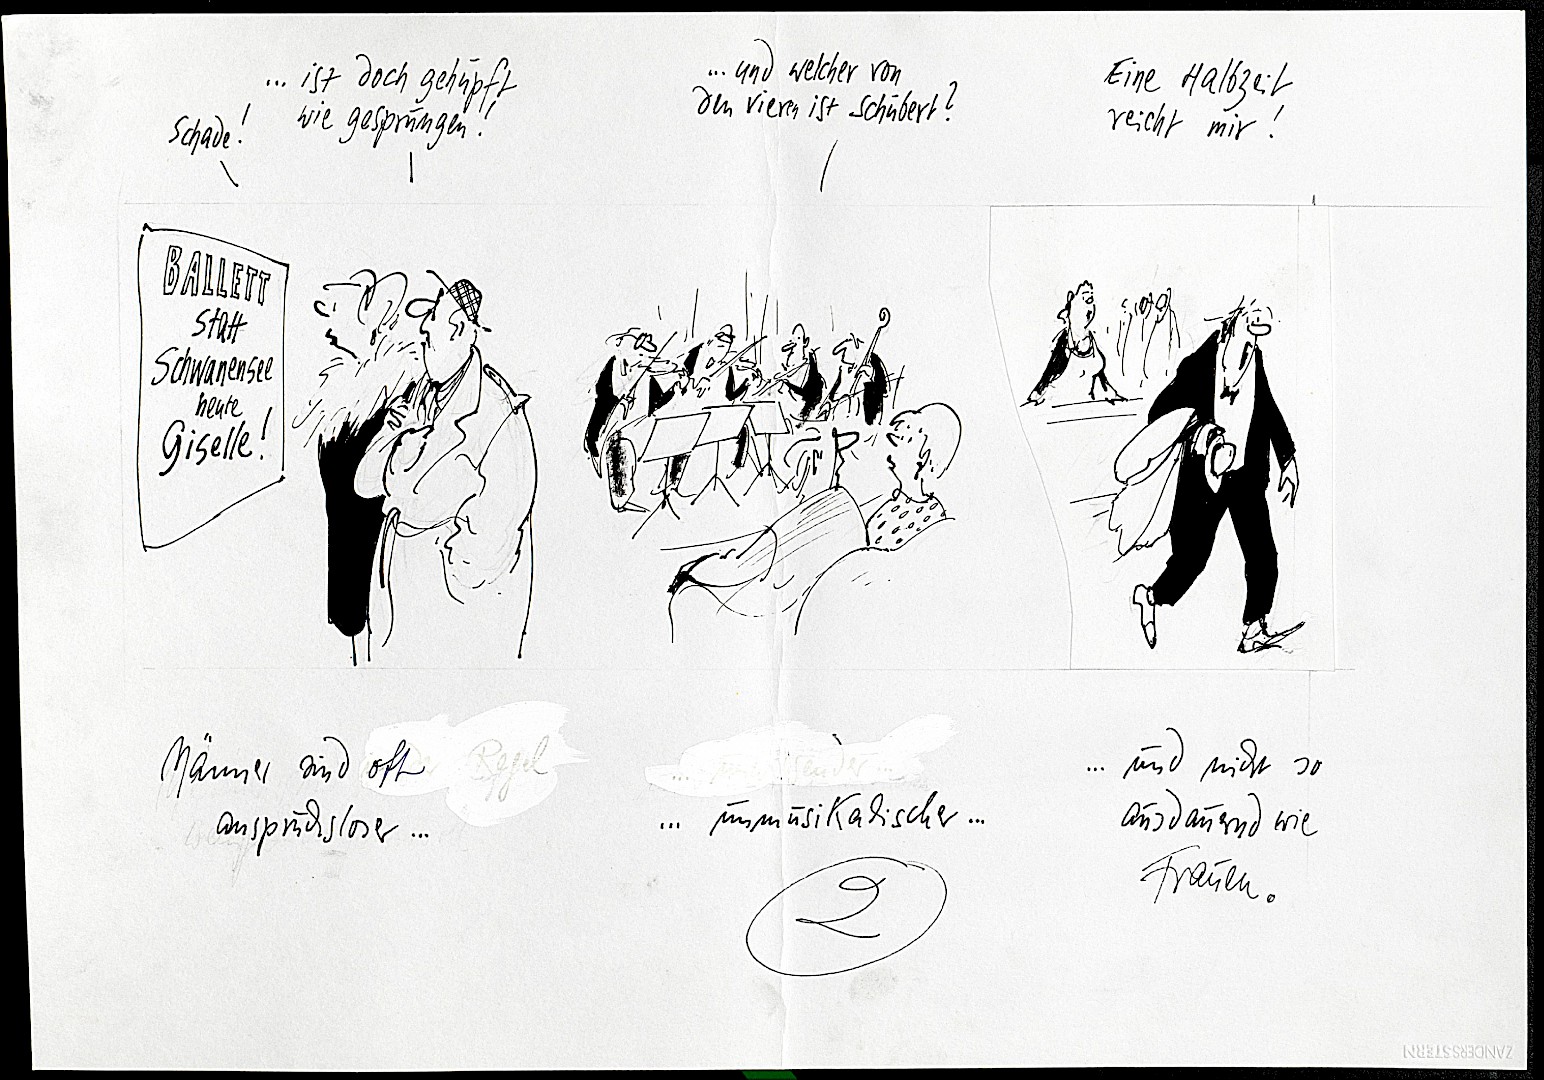 Schade!
... ist doch gehüpft
wie gesprungen!
... und welcher von
den vieren ist Schubert?
Eine Halbzeit
reicht mir!
BALLETT
statt
Schwanensee
heute
Giselle!
Männer sind oft
anspruchsloser ...
... unmusikalischer ...
... und nicht so
ausdauernd wie
Frauen.
2
ZANDERSSTERN